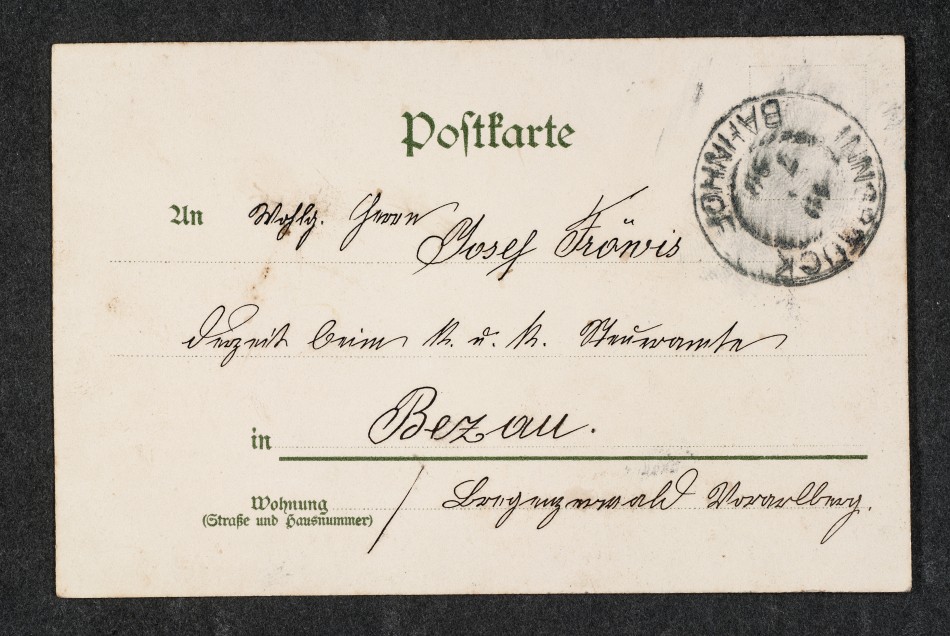 Postkarte
INNSBRUCK
BAHNHOF
An Wohlg. Herrn
Josef Fröwis
derzeit beim k. u. k. Steueramte
in Bezau.
Wohnung
(Straße und Hausnummer)
Bregenzerwald Vorarlberg.